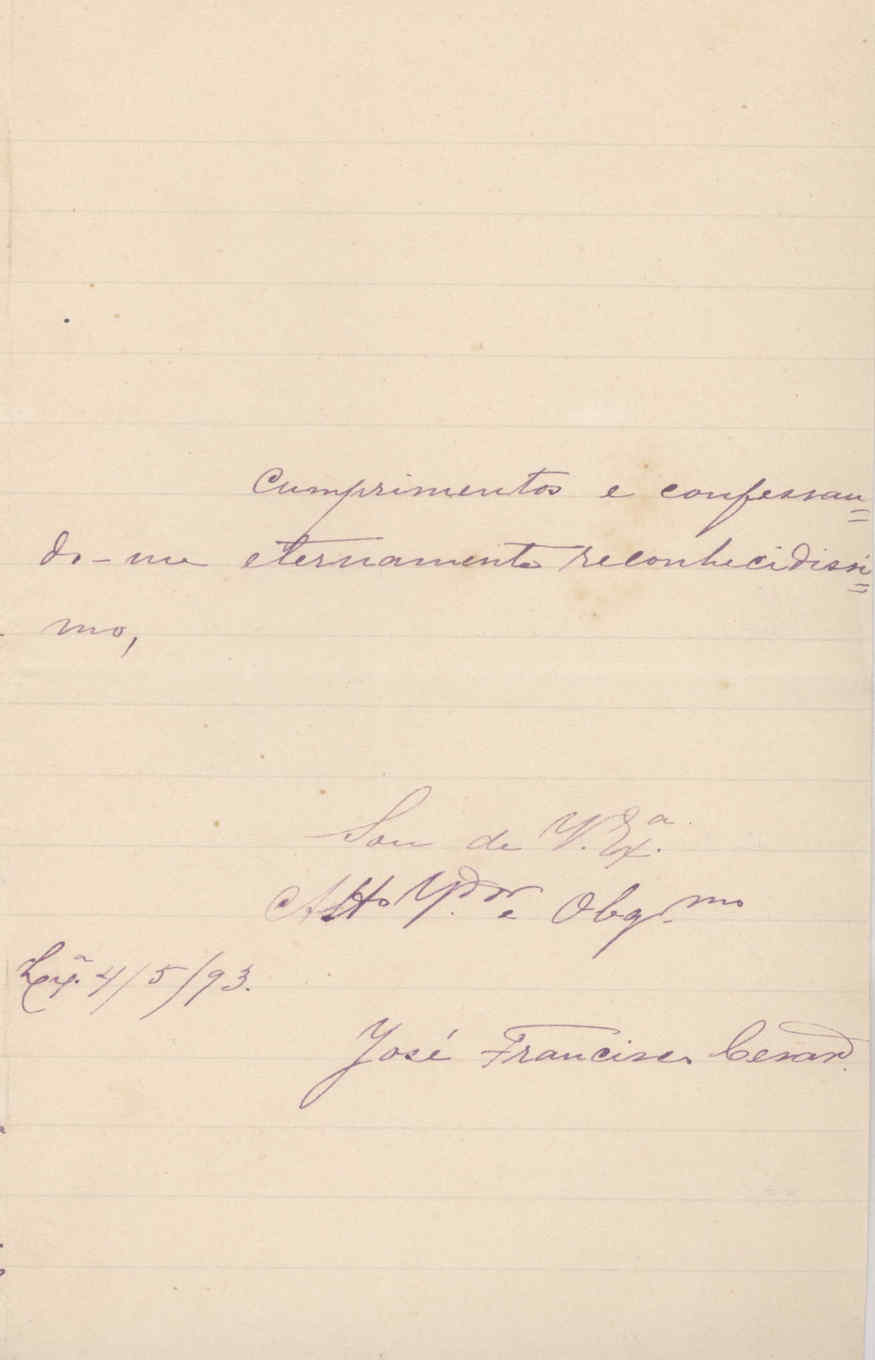 Cumprimentos e confessan=
do-me eternamente reconhecidissi=
mo,
Sou de V. Exª.
Atto Vdor e Obgmo
Lxª. 4/5/93.
José Francisco